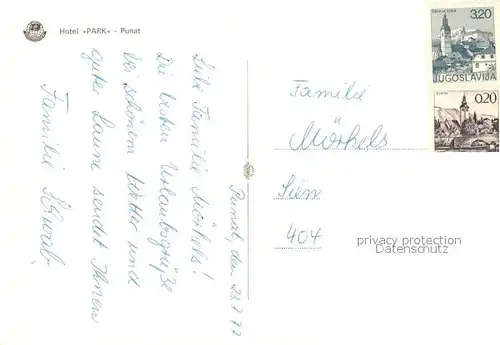 Hotel «PARK» - Punat
Punat, den 23.7.77
Liebe Familie Mörkels!
Die besten Urlaubsgrüße
bei schönem Wetter und
guter Laune sendet Ihnen
Familie Schwab.
Familie
Mörkels
Sien
404
3,20
JUGOSLAVIJA
0,20
privacy protection
Datenschutz